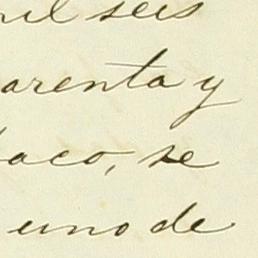 ril seis
arenta y
aco, se
uno de